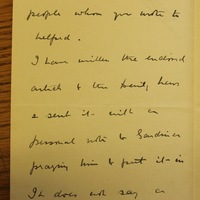 people whom you wrote to
helped.
I have written the enclosed
article to the Family
& sent it with a
personal note to Gardiner
praying him to put it in
It does not say a